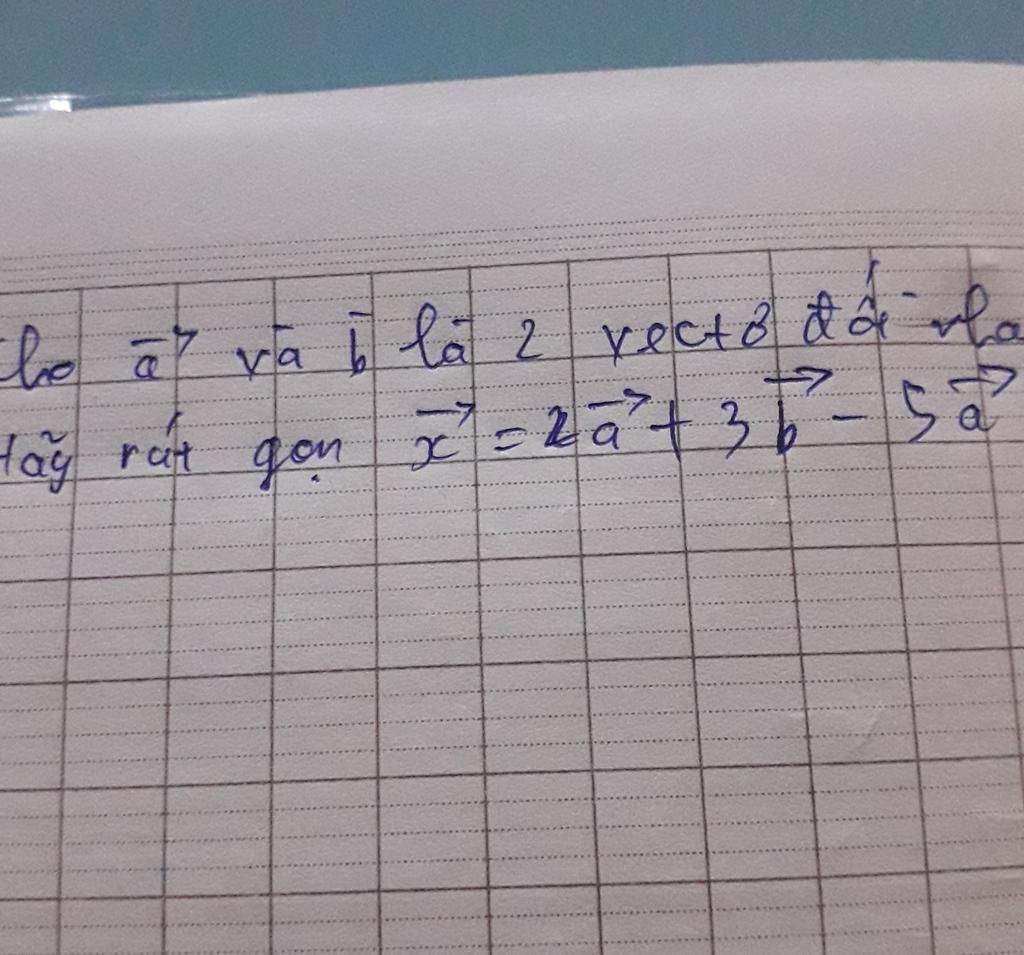 Cho a⃗ và b là 2 vectơ đối nha
Hãy rút gọn x⃗ = 2a⃗ + 3b⃗ - 5a⃗